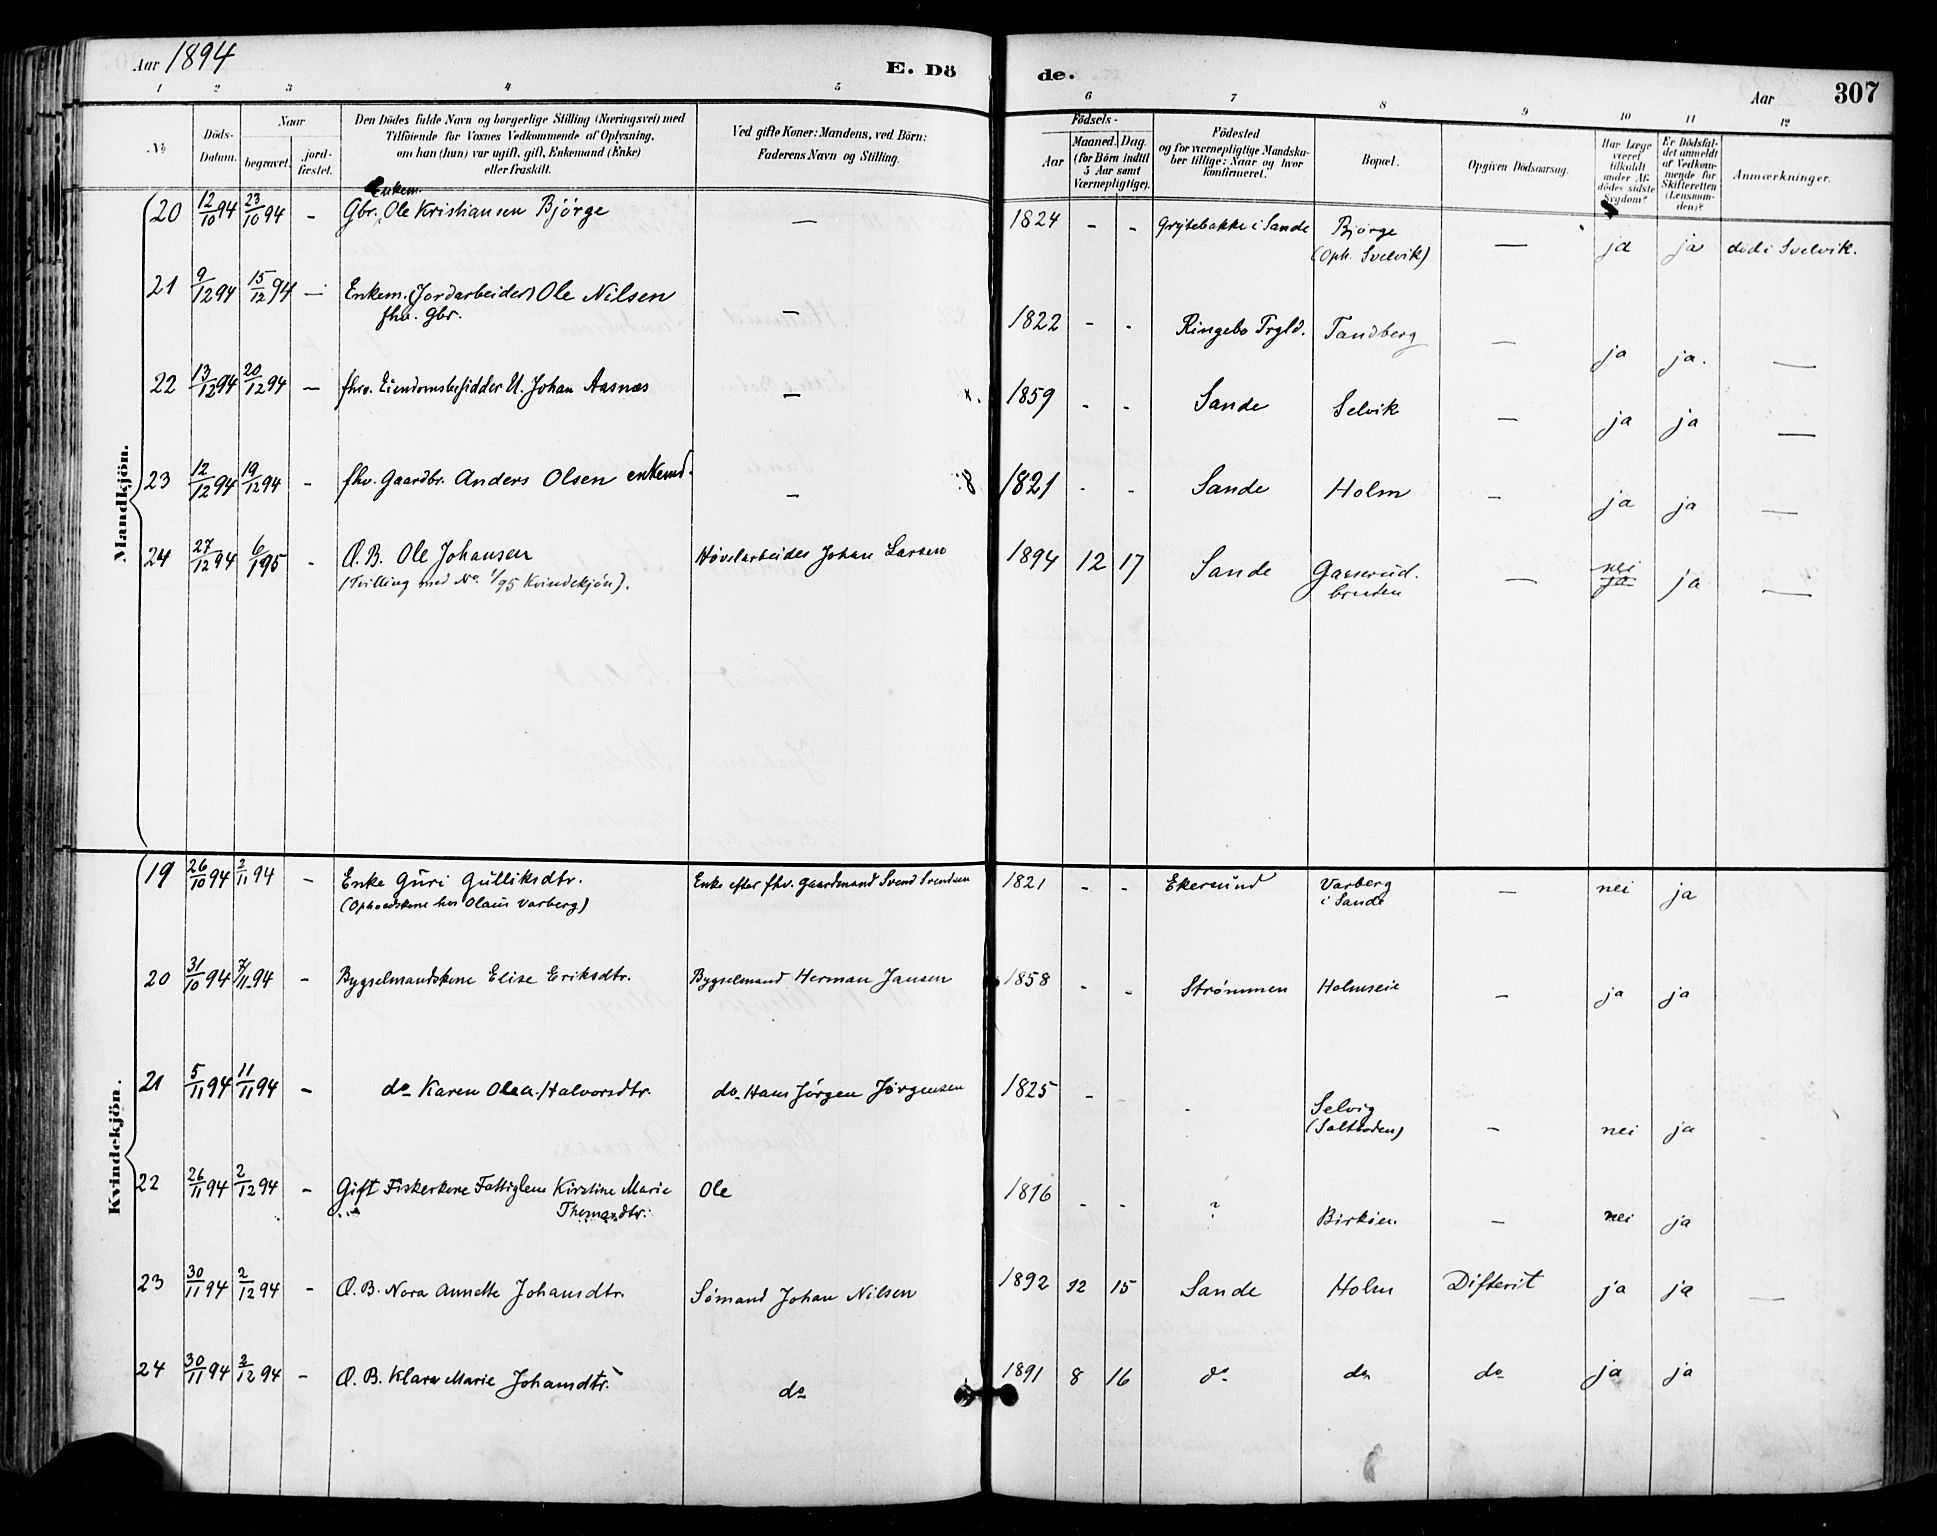 Aar 1894
E. Dö
de.
Aar
307
1 2 3 4 5 6 7 8 9 10 11 12
No
Döds-
Datum.
Naar
begravet.
jord-
fæstet.
Den Dödes fulde Navn og borgerlige Stilling (Næringsvei) med
Tilföiende for Voxnes Vedkommende af Oplysning,
om han (hun) var ugift, gift, Enkemand (Enke)
eller fraskilt.
Ved gifte Koner: Mandens, ved Börn:
Faderens Navn og Stilling.
Födsels-
Aar
Maaned. Dag.
(for Börn indtil
5 Aar samt
Værnepligtige).
Födested
og for værnepligtige Mandska-
ber tillige: Naar og hvor
konfirmeret.
Bopæl.
Opgiven Dödsaarsag.
Har Læge
været
tilkaldt
under Af-
dödes sidste
Sygdom?
Er Dödsfal-
det anmeldt
af Vedkom-
mende for
Skifteretten
(Lensman-
den)?
Anmærkninger.
Mandkjön.
Enkem.
20 12/10 94 23/10 94 - Gbr. Ole Kristiansen Bjørge — 1824 - - Grýtebakke i Sande Bjørge — ja ja död i Svelvik.
(Oph. Svelvik)
21 9/12 94 15/12 94 - Enkem. (Jordarbeider) Ole Nilsen — 1822 - - Ringebo Trgld. Tandberg — ja ja. —
fhv. gbr.
22 13/12 94 20/12 94 - fhv. Eiendomsbesidder U. Johan Aasnæs — x. 1859 - - Sande Selvik — ja ja —
23 12/12 94 19/12 94 - fhv. Gaardbr. Anders Olsen enkemd. — 1821 - - Sande Holm — ja ja —
24 27/12 94 6/1 95 - Æ. B. Ole Johansen Høvelarbeider Johan Larsen 1894 12 17 Sande Gaserud- — nei ja —
(Tvilling med No. 1/95 Kvindekjön). braaten ja
Kvindekjön.
19 26/10 94 2/11 94 - Enke Guri Gulliksdtr. Enke efter fhv. Gaardmand Svend Svendsen 1821 - - Ekersund Varberg — nei ja
(Ophoedskone hos Olaus Varberg) i Sande
20 31/10 94 7/11 94 - Bygselmandskone Elise Eriksdtr. Bygselmand Herman Jansen 1858 - - Strømmen Holmseie — ja ja
21 5/11 94 11/11 94 - do Karen Olea Halvorsdtr. do Hans Jørgen Jørgensen 1825 - - - Selvig — nei ja
(Saltboden)
22 26/11 94 2/12 94 - Gift Fiskerkone Fattiglem Kirstine Marie Ole 1816 - - ? Birkøen — nei ja
Thomasdtr.
23 30/11 94 2/12 94 - Æ. B. Nora Annette Johansdtr. Sømand Johan Nilsen 1892 12 15 Sande Holm Difterit ja ja —
24 30/11 94 2/12 94 - Æ. B. Klara Marie Johansdtr. do 1891 8 16 do do do ja ja